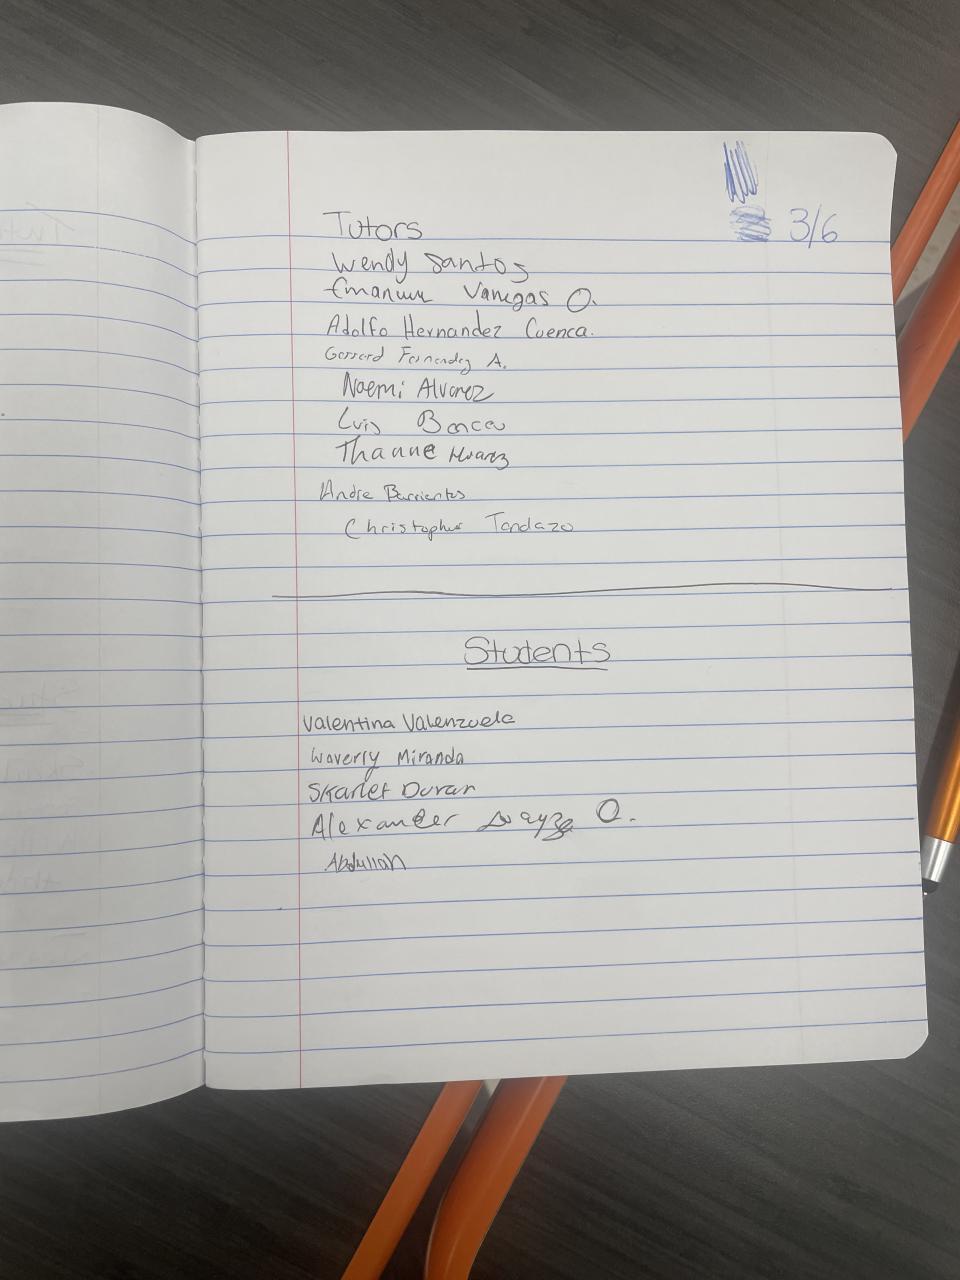 3/6
Tutors
Wendy Santos
Vanegas O.
Adolfo Hernandez Cuenca.
Gerrard Fernandez A.
Noemi Alvarez
Luis
Thanne
Andre Barrientos
Christopher Tandazo
Students
Valentina Valenzuela
Waverly Miranda
Skarlet Duran
Alexander O.
Abdullah